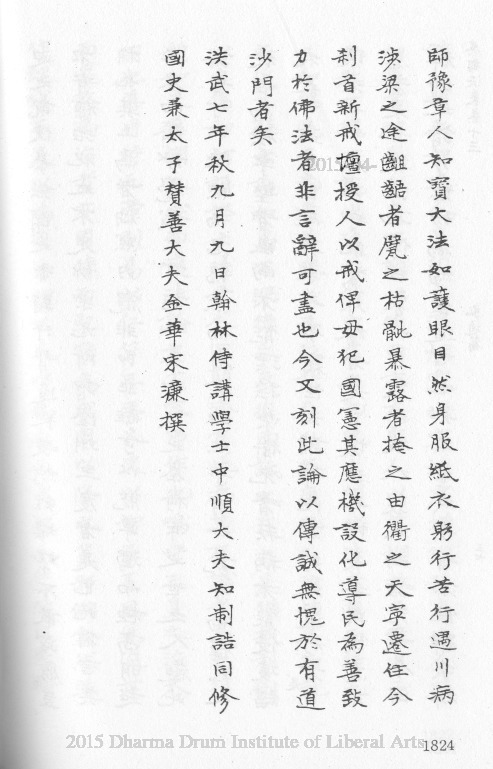 師豫章人知寶大法如護眼目然身服紙衣躬行苦行遇川病
涉梁之途齟齬者甓之枯骴暴露者掩之由衢之天寧遷住今
剎首新戒壇授人以戒俾毋犯國憲其應機設化導民為善致
力於佛法者非言辭可盡也今又刻此論以傳誠無愧於有道
沙門者矣
洪武七年秋九月九日翰林侍講學士中順大夫知制誥同修
國史兼太子贊善大夫金華宋濂撰
2015 Dharma Drum Institute of Liberal Arts
1824